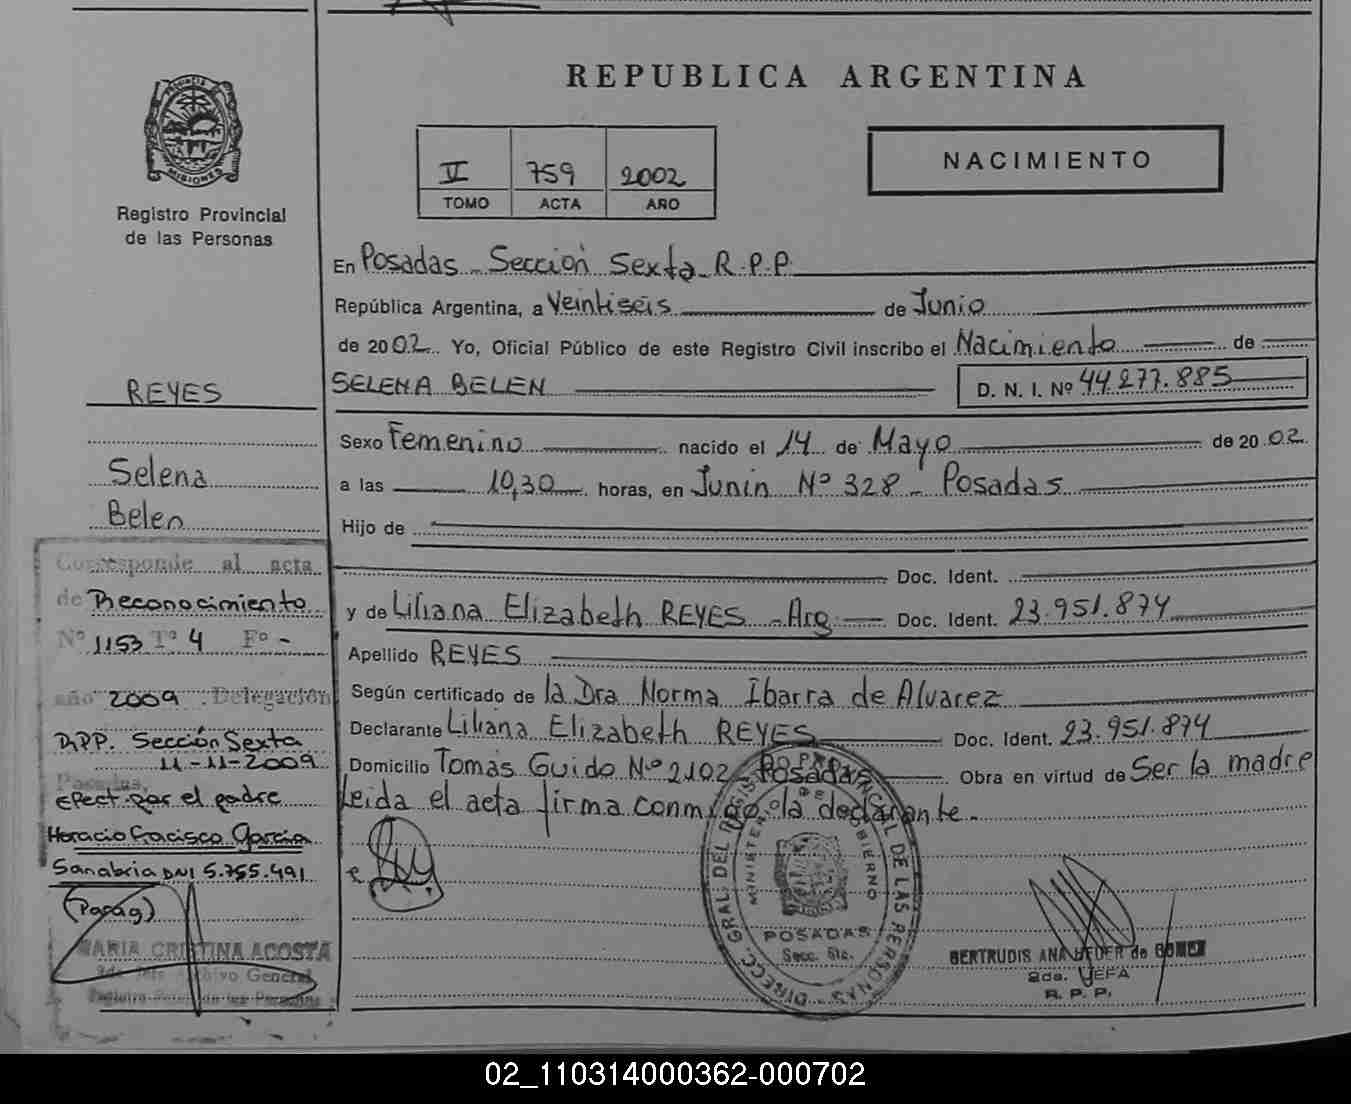 PROVINCIA DE
MISIONES
Registro Provincial
de las Personas
REPUBLICA ARGENTINA
V 759 2002
TOMO ACTA AÑO
NACIMIENTO
En Posadas - Sección Sexta - R.P.P.
República Argentina, a Veintiseis de Junio
de 2002. Yo, Oficial Público de este Registro Civil inscribo el Nacimiento de
SELENA BELEN D. N. I. Nº 44.277.885
Sexo Femenino nacido el 14 de Mayo de 2002.
a las 10,30 horas, en Junin Nº 328 - Posadas
Hijo de
Doc. Ident.
y de Liliana Elizabeth REYES - Arg Doc. Ident. 23.951.874
Apellido REYES
Según certificado de la Dra Norma Ibarra de Alvarez
Declarante Liliana Elizabeth REYES Doc. Ident. 23.951.874
Domicilio Tomas Guido Nº 2102 - Posadas Obra en virtud de Ser la madre
Leida el acta firma conmigo la declarante.
REYES
Selena
Belen
Corresponde al acta
de Reconocimiento
Nº 1153 Tº 4 Fº -
año 2009 . Delegación
RPP. Sección Sexta
Posadas, 11-11-2009
Efect. por el padre
Horacio Fracisco Garcia
Sanabria DNI 5.755.491
(Parag)
MARIA CRISTINA ACOSTA
2da. Jefe Archivo General
Registro Prov. de las Personas
DIRECC. GRAL. DEL REGISTRO PROVINCIAL DE LAS PERSONAS
MINISTERIO DE GOBIERNO
POSADAS
Secc. 6ta.
GERTRUDIS ANA de GOMEZ
2da. JEFA
R. P. P.
02_110314000362-000702